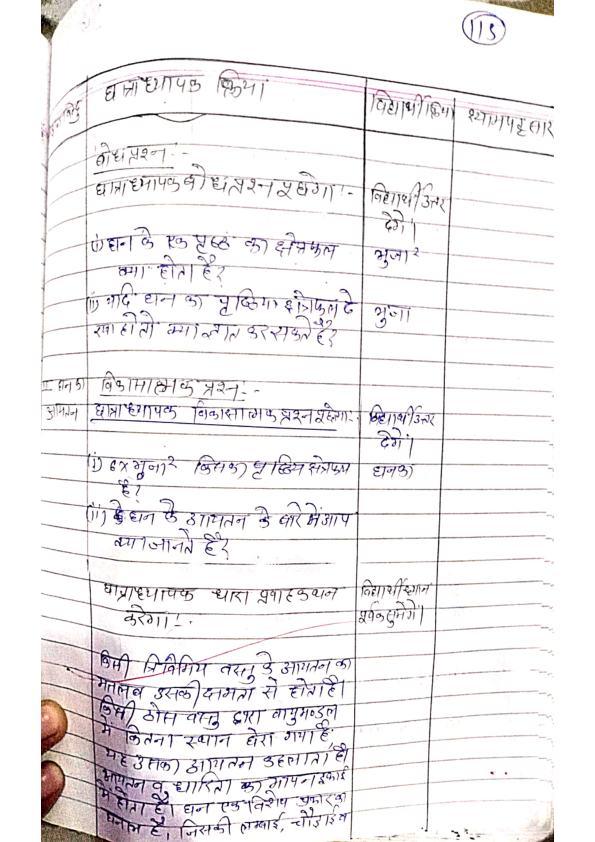 113
छात्राध्यापक क्रिया
विद्यार्थी क्रिया
श्यामपट्ट सार
बोध प्रश्न :-
छात्राध्यापक बोध प्रश्न पूछेगा :-
विद्यार्थी उत्तर
देंगे।
(i) घन के एक पृष्ठ का क्षेत्रफल
भुजा²
क्या होता है?
(ii) यदि घन का पृष्ठिय क्षेत्रफल दे
भुजा
रखा हो तो क्या ज्ञात कर सकते है?
II घन का
विकासात्मक प्रश्न :-
आयतन
छात्राध्यापक विकासात्मक प्रश्न पूछेगा :-
विद्यार्थी उत्तर
देंगे।
(i) 6 x भुजा² किसका पृष्ठिय क्षेत्रफल
घनका
है?
(ii) घन के आयतन के बारे में आप
क्या जानते है?
छात्राध्यापक द्वारा प्रवाह कथन
विद्यार्थी ध्यान
करेगा :-
पूर्वक सुनेगें।
किसी त्रिविमिय वस्तु के आयतन का
मतलब उसकी क्षमता से होता है।
किसी ठोस वस्तु द्वारा वायुमण्डल
में कितना स्थान घेरा गया है,
यह उसका आयतन कहलाता है।
आयतन व धारिता का मापन इकाई
में होता है। घन एक विशेष प्रकार का
घनाभ है, जिसकी लम्बाई, चौड़ाई व